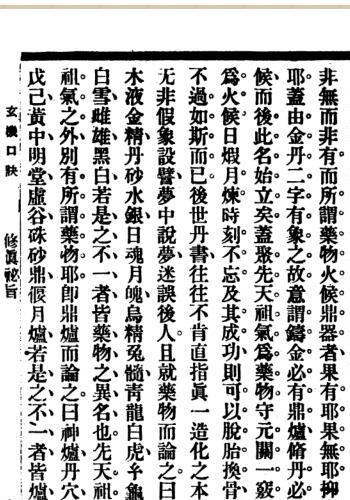 非無而非有而所謂藥物火候鼎器者果有耶果無耶抑
耶蓋由金丹二字有象之故意謂鑄金必有鼎爐脩丹必
候而後此名始立矣蓋聚先天祖氣爲藥物守元關一竅
爲火候日煆月煉時刻不忘及其成功則可以脫胎換骨
不過如斯而已後世丹書往往不肯直指眞一造化之本
無非假象設譬夢中說夢迷誤後人且就藥物而論之曰
木液金精丹砂水銀日魂月魄烏精兔髓靑龍白虎
白雪雌雄黑白若是之不一者皆藥物之異名也先天祖
祖氣之外別有所謂藥物耶卽鼎爐而論之曰神爐丹穴
戊己黃中明堂虛谷硃砂鼎偃月爐若是之不一者皆爐
玄機口訣
修眞祕旨